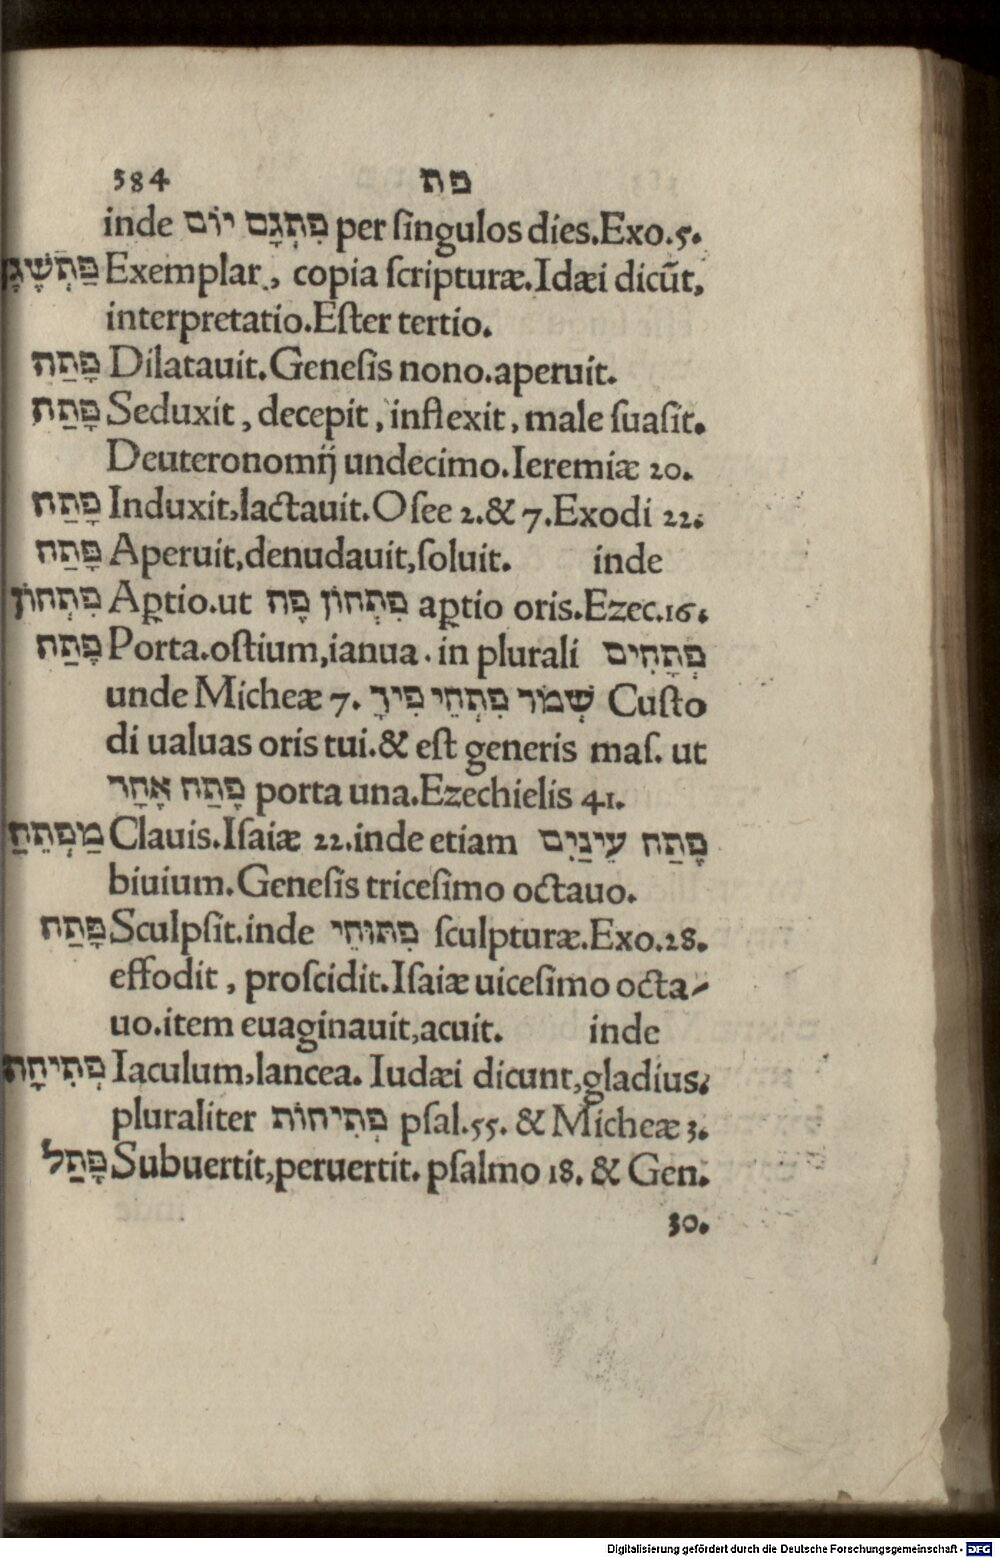 384 פת
inde פִּתְגָם יוֹם per ſingulos dies.Exo.5.
פַּתְשֶׁגֶן Exemplar., copia ſcripturæ.Idæi dicũt,
interpretatio.Eſter tertio.
פָּתַח Dilatauit.Geneſis nono.aperuit.
פָּתַח Seduxit, decepit, inflexit, male ſuaſit.
Deuteronomij undecimo.Ieremiæ 20.
פָּתַח Induxit,lactauit.Oſee 2.& 7.Exodi 22.
פָּתַח Aperuit,denudauit,ſoluit. inde
פִּתְחוֹן Aꝑtio.ut פִּתְחוֹן פֶּה aꝑtio oris.Ezec.16.
פֶּתַח Porta.oſtium,ianua. in plurali פְּתָחִים
unde Micheæ 7. שְׁמֹר פִּתְחֵי פִיךָ Cuſto
di ualuas oris tui.& eſt generis maſ. ut
פֶּתַח אֶחָר porta una.Ezechielis 41.
מַפְתֵּחַ Clauis.Iſaiæ 22.inde etiam פֶּתַח עֵינַיִם
biuium.Geneſis triceſimo octauo.
פָּתַח Sculpſit.inde פִּתּוּחֵי ſculpturæ.Exo.28.
effodit, proſcidit.Iſaiæ uiceſimo octa-
uo.item euaginauit,acuit. inde
פְּתִיחָה Iaculum,lancea. Iudæi dicunt,gladius.
pluraliter פְּתִיחוֹת pſal.55. & Micheæ 3.
פָּתַל Subuertit,peruertit. pſalmo 18. & Gen.
30.
Digitalisierung gefördert durch die Deutsche Forschungsgemeinschaft - DFG